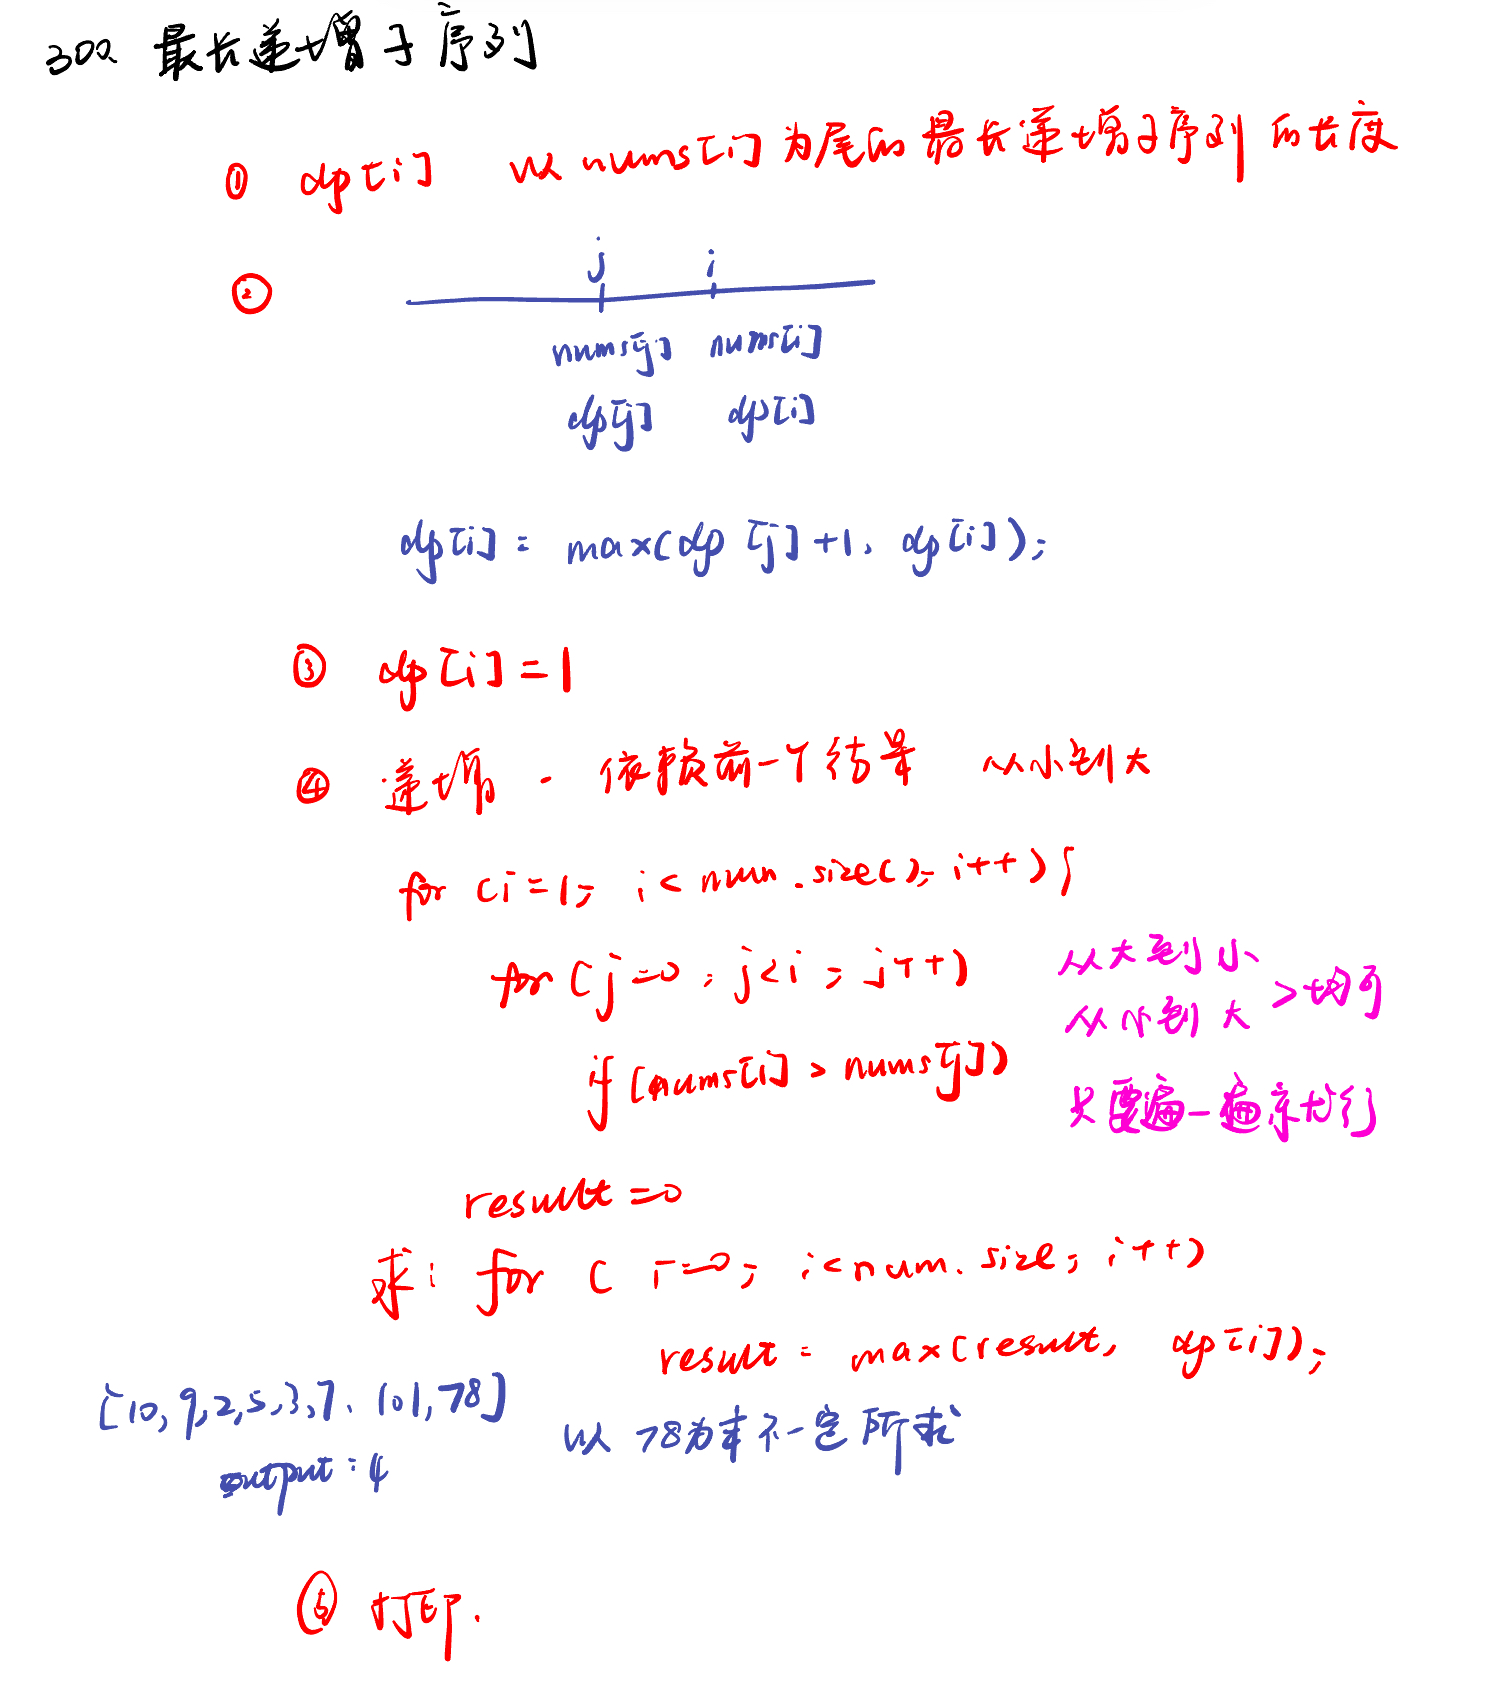 300、最长递增子序列
① dp[i] 以nums[i]为尾的最长递增子序列的长度
②
j i
nums[j] nums[i]
dp[j] dp[i]
dp[i] = max(dp[j]+1, dp[i]);
③ dp[i]=1
④ 递增. 依赖前一个结果 从小到大
for (i=1; i<num.size(); i++){
for (j=0; j<i; j++) 从大到小
从小到大 >均可
if (nums[i] > nums[j])
只要遍一遍亦就行
result=0
求: for ( i=0; i<num.size; i++)
result = max(result, dp[i]);
[10, 9, 2, 5, 3, 7, 101, 78]
以78为末不一定所求
output: 4
⑤ 打印.